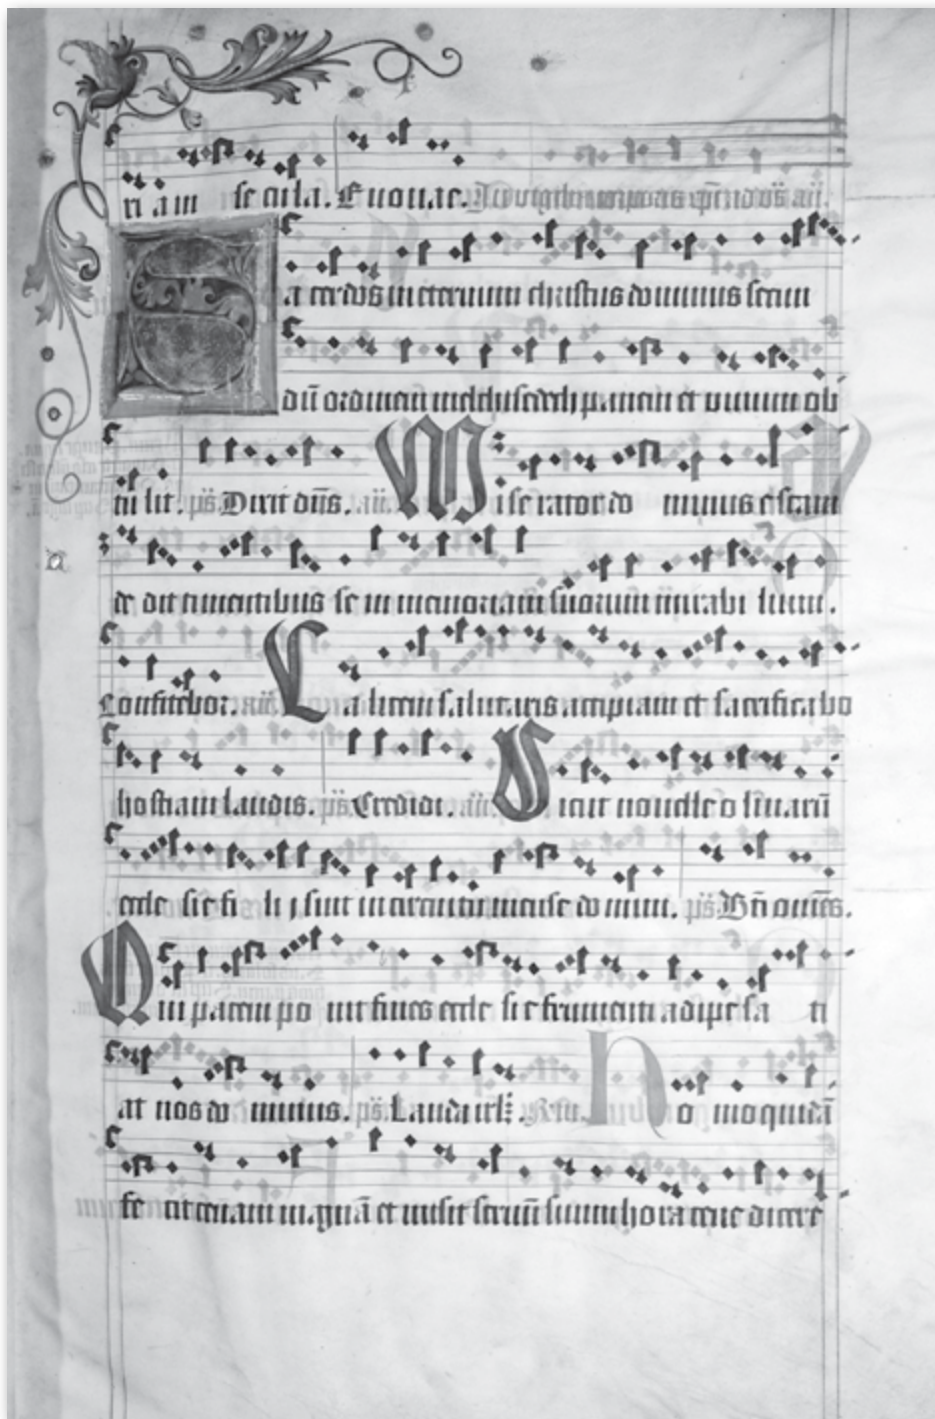 ri am se cula. Euouae. Ad vigilias
Sa cerdos in eternum christus dominus secun
dū ordinem melchisedech panem et vinum ob
tu lit. ps̄ Dixit dn̄s. an̄ Mi se rator do minus escam
de dit timentibus se in memoriam suorum mirabi lium.
Confitebor. an̄ Ca licem salutaris accipiam et sacrifica bo
hostiam laudis. ps̄ Credidi. an̄ Sicut nouelle o liuarū
eccle sie fi li j sint in circuitu mense do mini. ps̄ Bt̄i omēs.
Qui pacem po nit fines eccle sie frumenti adipe sa ti
at nos do minus. ps̄ Lauda irlm̄. Rsu. ho mo quidā
fe cit cenam magnā et misit seruū suum hora cene dicere